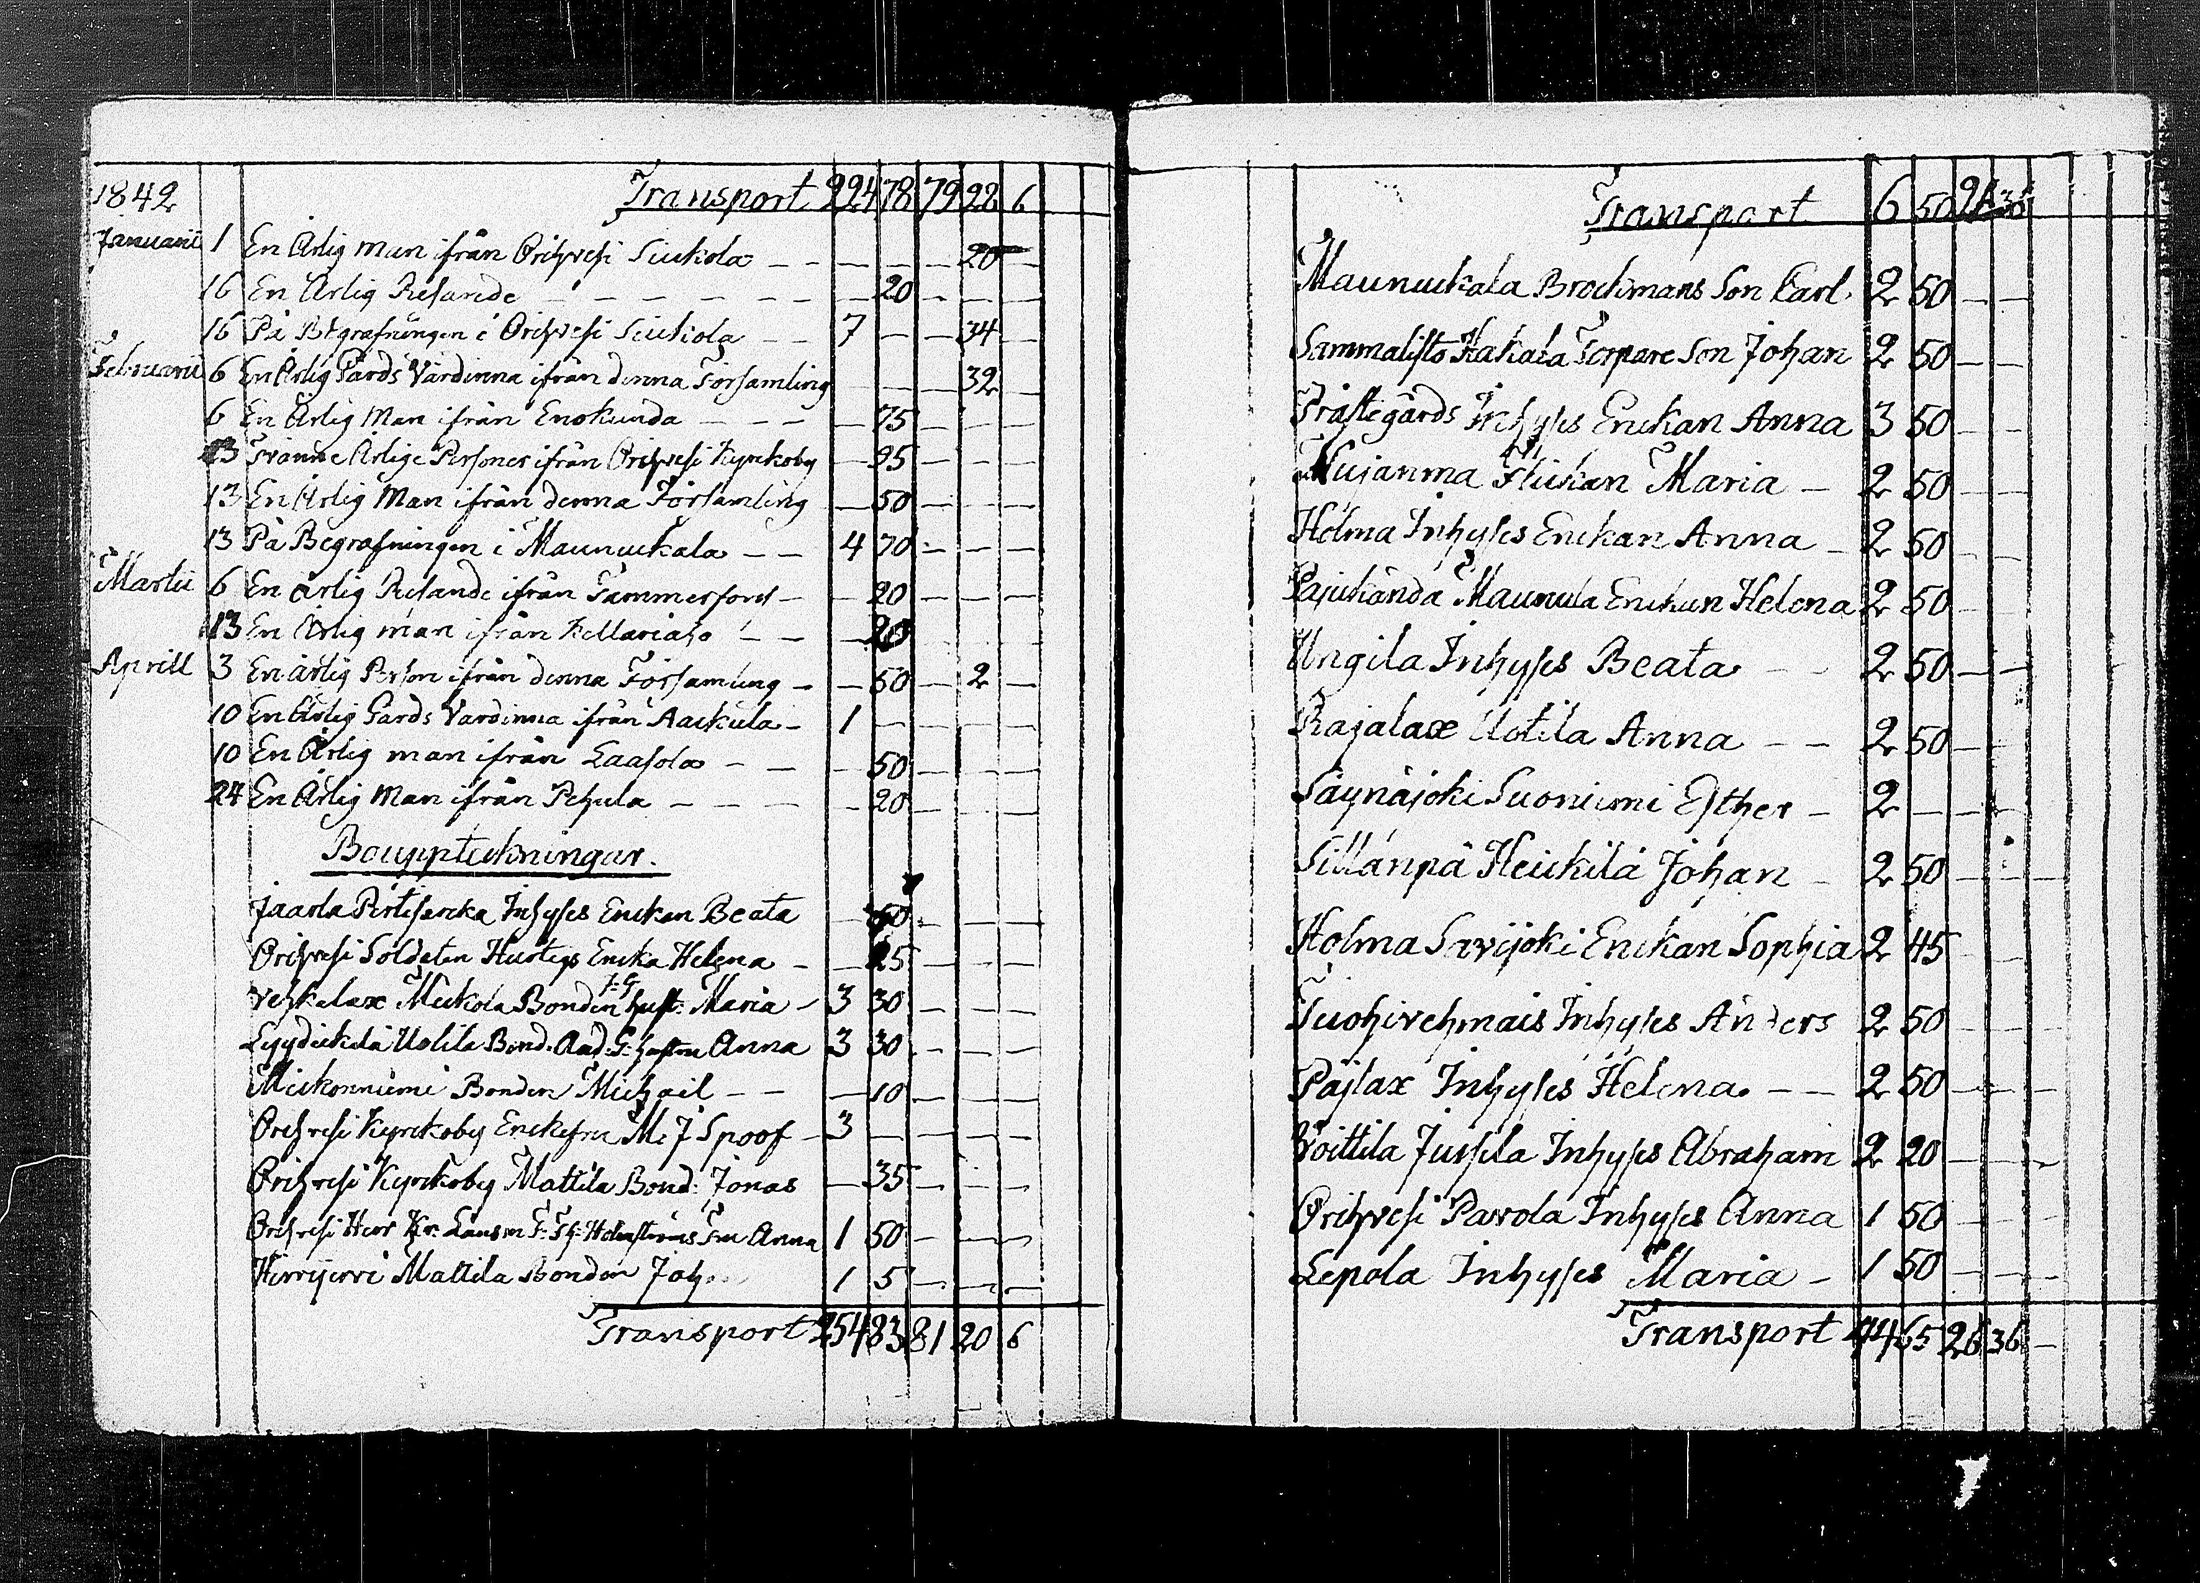 1842 Transport 224 78 79 22 6
Januarii 1 En Ärlig man ifrån Orihvesi Siukola - - - - - 20 -
16 En Ärlig Resande - - - - - - - 20 - - -
16 På Begrafningen i Orihvesi Siukola - - 7 - - 34 -
Februarii 6 En Ärlig Gårds Värdinna ifrån denna Församling - - - 32 -
6 En Ärlig Man ifrån Enokunda - - - - 75 - - -
13 Tvänne Ärlige Personer ifrån Orihvesi Kyrckoby - 95 - - -
13 En Ärlig Man ifrån denna Församling - 50 - - -
13 På Begrafningen i Maunuckala - - 4 70 - - -
Martii 6 En ärlig Resande ifrån Tammerfors - - 20 - - -
13 En Ärlig man ifrån Kellariaho - - - 20 - - -
Aprill 3 En ärlig Person ifrån denna Församling - - 50 - 2 -
10 En Ärlig Gards Vardinna ifrån Aackula - 1 - - - -
10 En Ärlig man ifrån Laasola - - - 50 - - -
24 En Ärlig Man ifrån Pehula - - - - 20 - - -
Bouppteckningar.
Jaarla Inhyses Enckan Beata - 50 - - -
Orihvesi Soldaten Encka Helena - - 25 - - -
Vehkalax Mickola Bonden hust: Maria - 3 30 - - -
Lyydickälä Uotila Bond. Anna 3 30 - - -
Mickonniemi Bonden Michael - - - 10 - - -
Orihvesi Kyrckoby Enckefru M: J Spoof - 3 - - - -
Orihvesi Kyrckoby Mattila Bond: Jonas - 35 - - -
Orihvesi Herr Kr: Länsm F: Fru Anna 1 50 - - -
Hirvijervi Mattila Bonden Joh 1 5 - - -
Transport 254 83 81 20 6
Transport 6 50 26 36
Maunuckala Brockmans Son Carl. 2 50 - -
Sammalisto Kakala Torpare Son Johan 2 50 - -
Prästegårds Inhyses Enckan Anna 3 50 - -
Flickan Maria - 2 50 - -
Holma Inhyses Enckan Anna - 2 50 - -
Pajukanda Maunula Enckan Helena 2 50 -
Ungila Inhyses Beata - - 2 50 - -
Rajalax Uotila Anna - - 2 50 -
Säynäjoki Suoniemi Esther - 2 - - -
Sillänpä Heickilä Johan - 2 50 - - -
Holma Savijoki Enckan Sophia 2 45 - -
Tuohivehmais Inhyses Anders 2 50 - - -
Päjlax Inhyses Helena. - - 2 50 - - -
Voittila Jussila Inhyses Abraham 2 20 - - -
Orihvesi Pavola Inhyses Anna 1 50 - - -
Lepola Inhyses Maria - 1 50 - - -
Transport 44 65 26 36 -